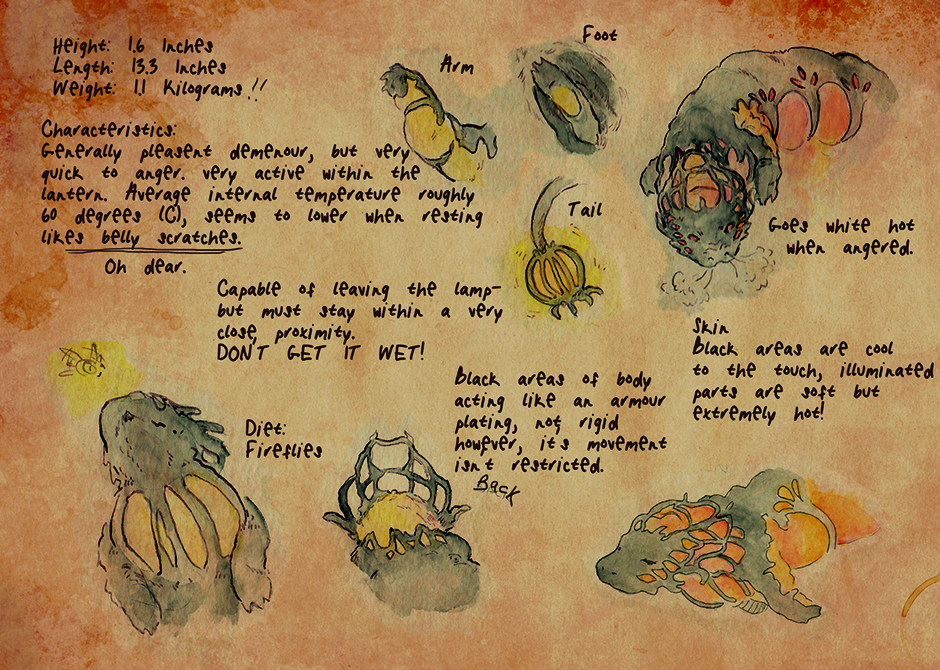 Height: 1.6 Inches
Length: 13.3 Inches
Weight: 1.1 Kilograms!!
Characteristics:
Generally pleasent demenour, but very
quick to anger. very active within the
lantern. Average internal temperature roughly
60 degrees (C), seems to lower when resting
likes belly scratches.
Oh dear.
Capable of leaving the lamp-
but must stay within a very
close, proximity.
DON'T GET IT WET!
Arm
Foot
Tail
Goes white hot
when angered.
Skin
Black areas are cool
to the touch, illuminated
parts are soft but
extremely hot!
Black areas of body
acting like an armour
plating, not rigid
however, it's movement
isn't restricted.
Back
Diet:
Fireflies